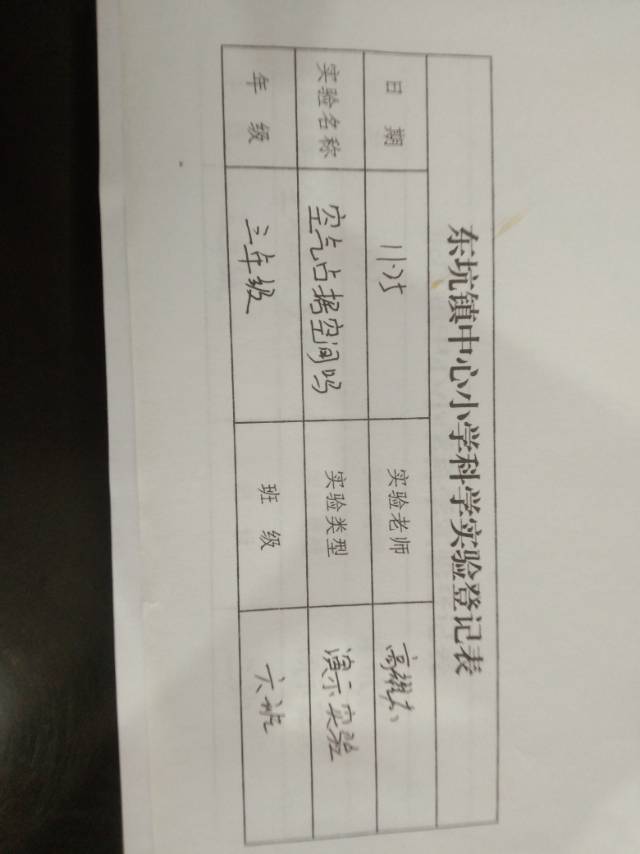 东坑镇中心小学科学实验登记表
日 期 11.25 实验老师 高
实验名称 空气占据空间吗 实验类型 演示实验
年 级 三年级 班 级 六班